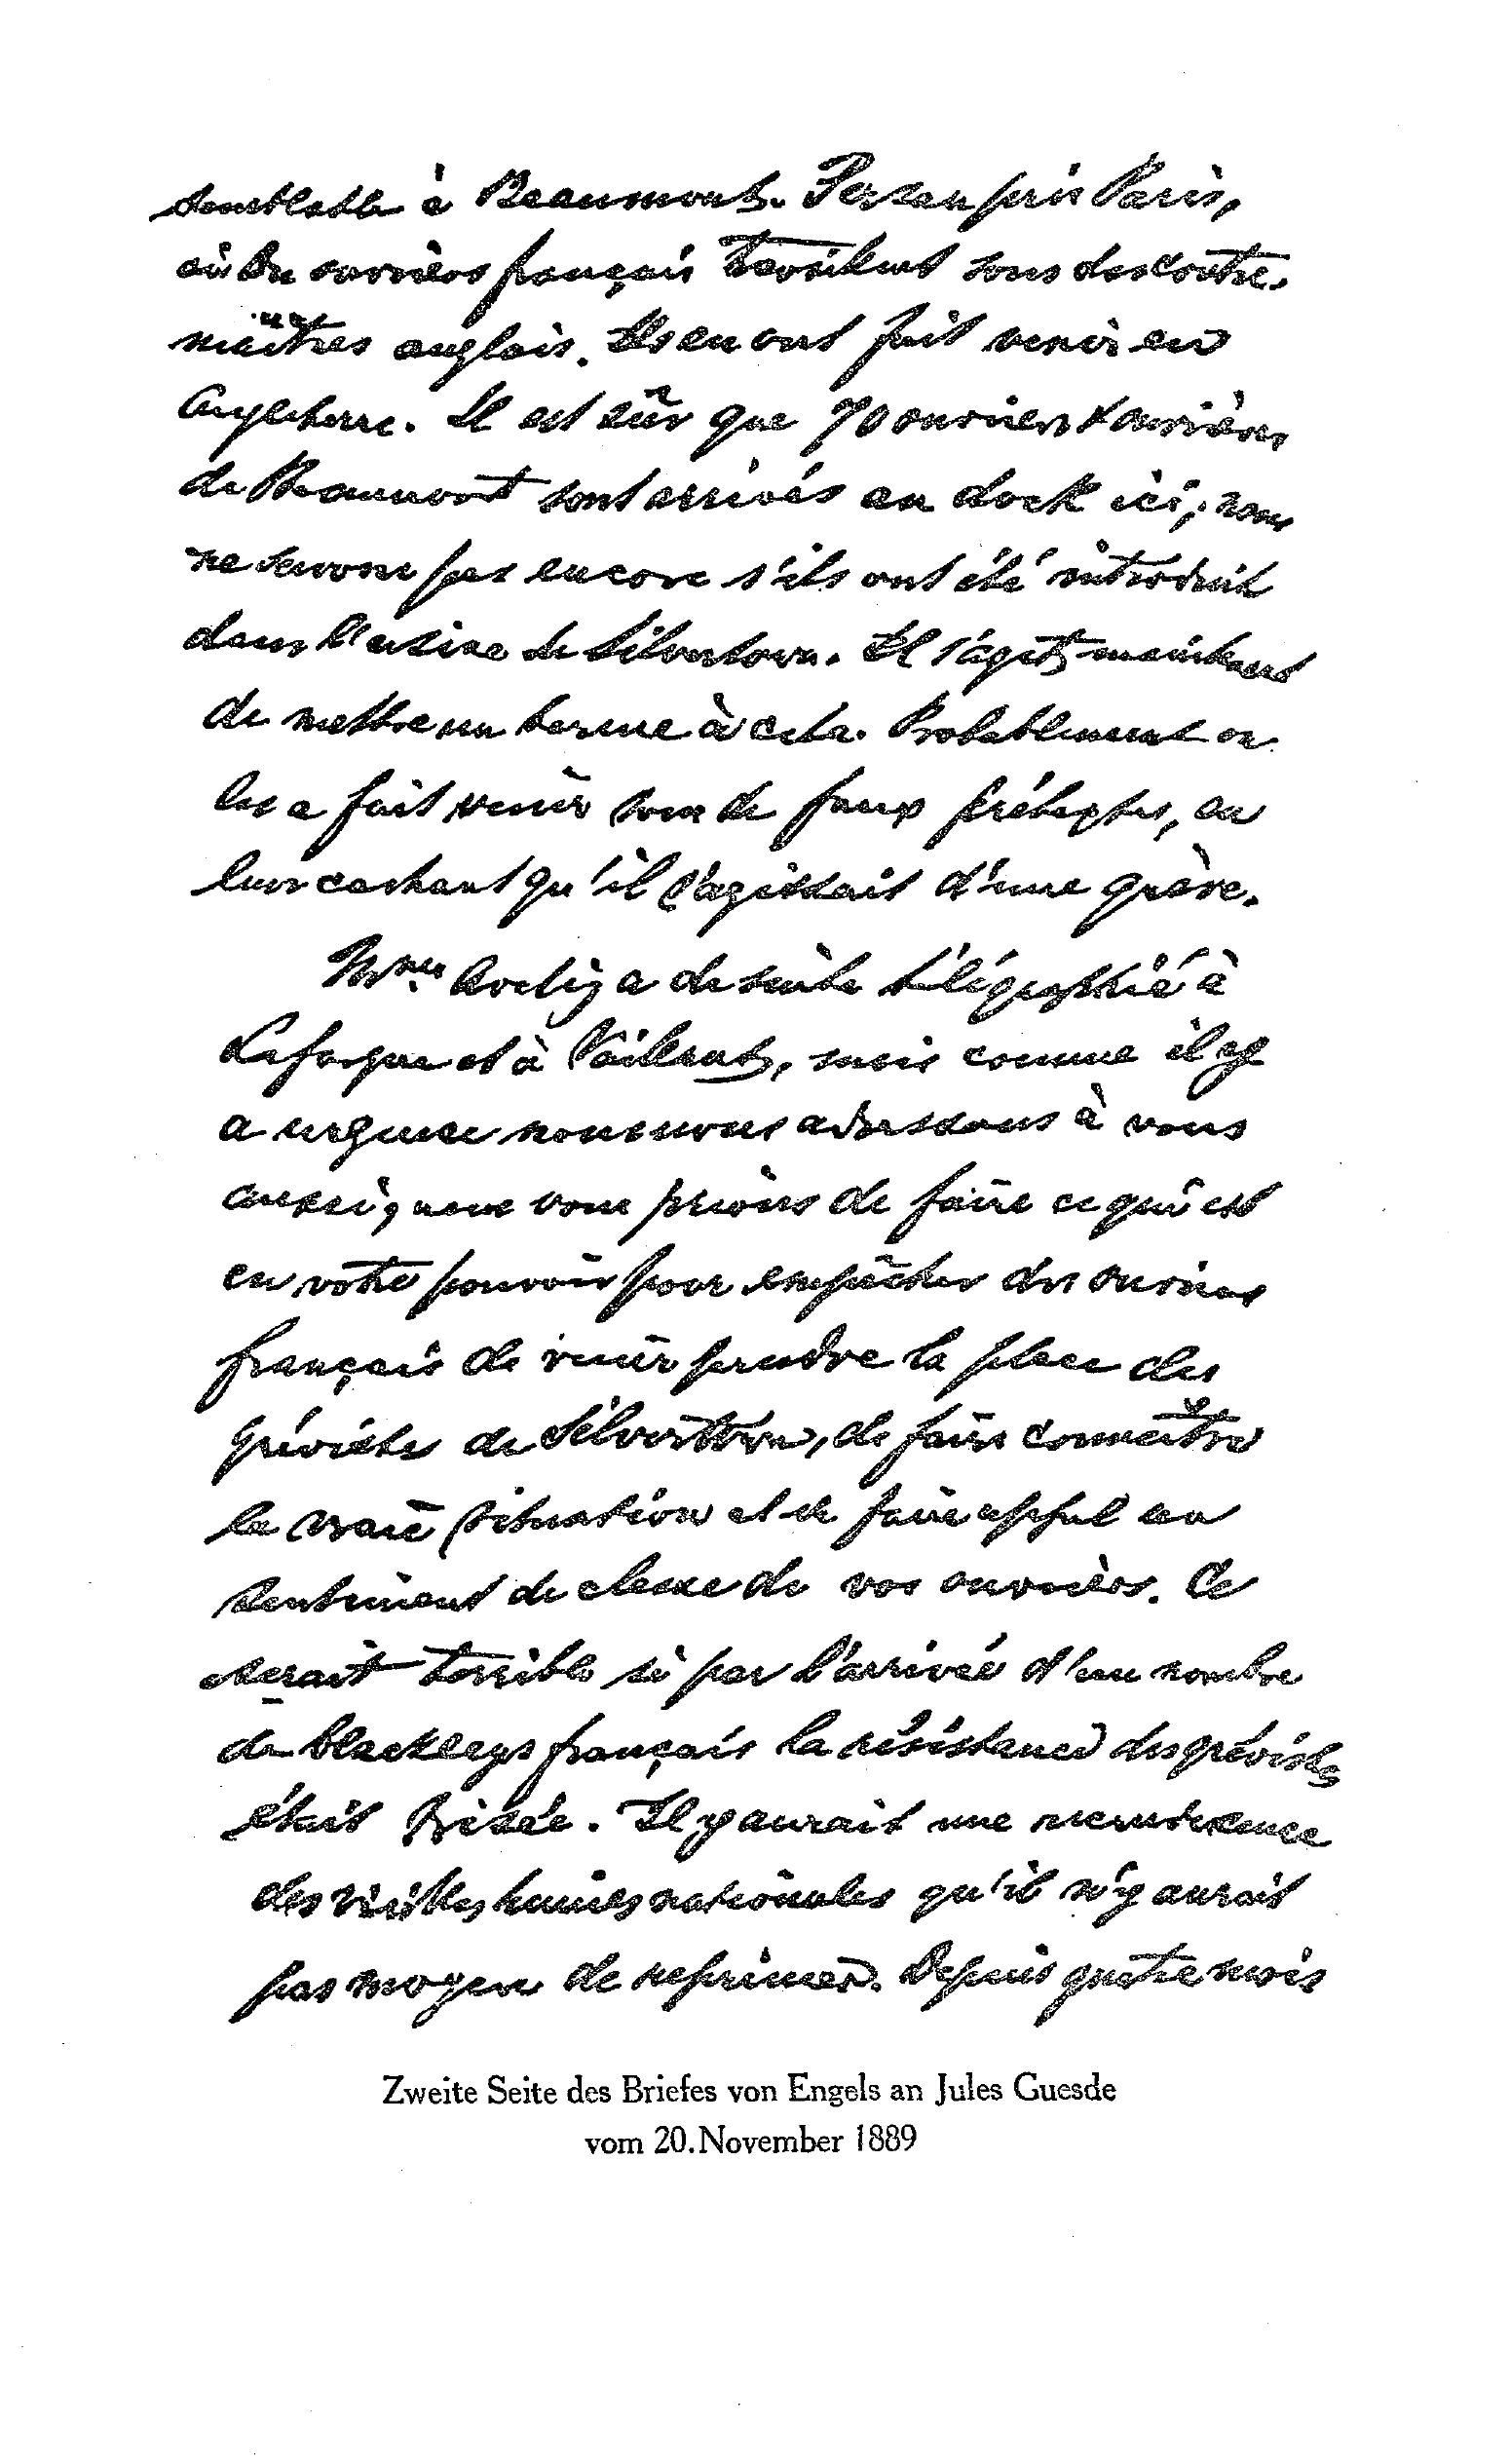 semblable à Beaumont-Persan près Paris,
où des ouvriers français travaillent sous des contre-
maîtres anglais. Ils en ont fait venir en
Angleterre. Il est sûr que 70 ouvriers & ouvrières
de Beaumont sont arrivés au dock ici; nous
ne savons pas encore s'ils ont été introduits
dans l'usine de Silvertown. Il s'agit maintenant
de mettre un terme à cela. Probablement on
les a fait venir sous de faux prétextes, en
leur cachant qu'il s'agissait d'une grève.
Mme Aveling a de suite télégraphié à
Lafargue et à Vaillant, mais comme il y
a urgence nous nous adressons à vous
aussi; nous vous prions de faire ce qui est
en votre pouvoir pour empêcher des ouvriers
français de venir prendre la place des
grévistes de Silvertown, de faire connaître
la vraie situation et de faire appel au
sentiment de classe de vos ouvriers. Ce
serait terrible si par l'arrivée d'un nombre
de blacklegs français la résistance des grévistes
était brisée. Il y aurait une recrudescence
des vieilles haines nationales qu'il n'y aurait
pas moyen de réprimer. Depuis quatre mois
Zweite Seite des Briefes von Engels an Jules Guesde
vom 20. November 1889